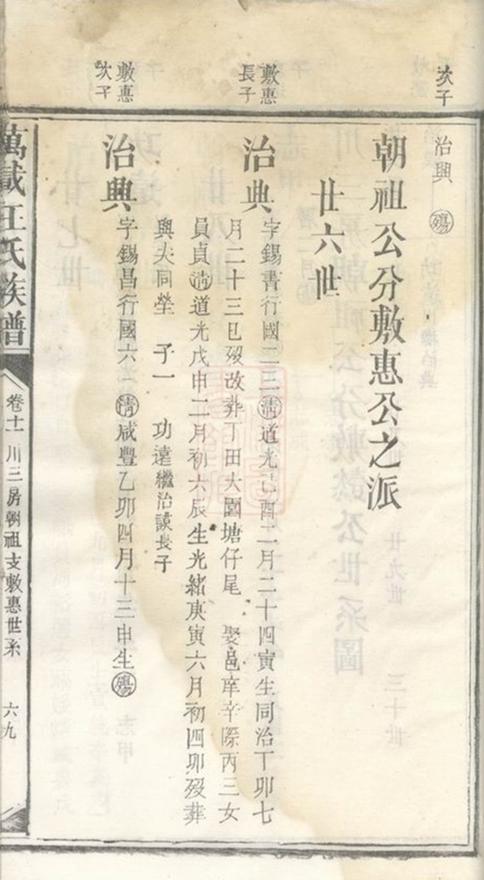 次子
治興 殤
朝祖公分敷惠公之派
廿六世
敷惠
長子
治典
字錫書行國二三清道光己酉二月二十四寅生同治丁卯七
月二十三巳歿改葬丁田大園塘仔尾 娶邑庠辛際丙三女
員貞清道光戊申二月初六辰生光緒庚寅六月初四卯歿葬
與夫同塋 子一 功遠繼治諌長子
敷惠
次子
治興
字錫昌行國六二清咸豐乙卯四月十三申生殤
萬載汪氏族譜
卷十一 川三房朝祖支敷惠世系
六九